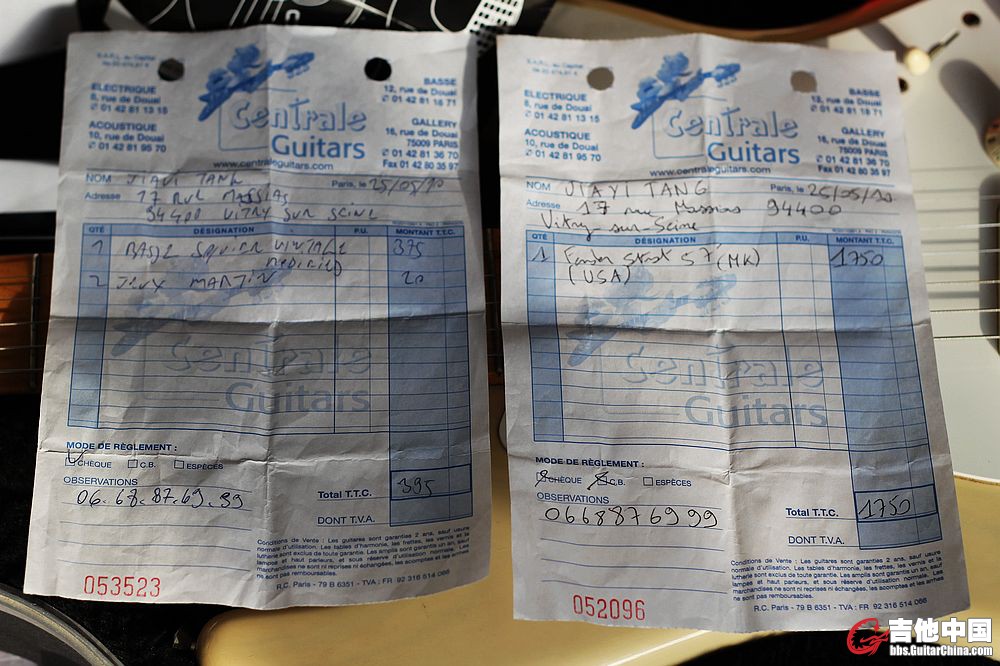 ELECTRIQUE
8, rue de Douai
✆ 01 42 81 13 15
ACOUSTIQUE
10, rue de Douai
✆ 01 42 81 95 70
Centrale
Guitars
www.centraleguitars.com
BASSE
12, rue de Douai
✆ 01 42 81 16 71
GALLERY
16, rue de Douai
75009 PARIS
✆ 01 42 81 36 70
Fax 01 42 80 35 97
NOM JIAYI TANG Paris, le 25/05/10
Adresse 17 RUE MASSIAS
94400 VITRY SUR SEINE
QTÉ DÉSIGNATION P.U. MONTANT T.T.C.
1 BASSE SQUIER VINTAGE 375
MODIFIED
2 JEUX MARTIN 20
Centrale
Guitars
MODE DE RÈGLEMENT :
CHÈQUE C.B. ESPÈCES
OBSERVATIONS
06.68.87.69.99
Total T.T.C. 395
DONT T.V.A.
Conditions de Vente : Les guitares sont garanties 2 ans, sauf usure
normale d'utilisation. Les tables d'harmonie, les frettes, les vernis et la
lutherie sont exclus de toute garantie. Les amplis sont garantis un an, sauf
lampes et haut parleurs, et sous réserve d'utilisation normale. Les
marchandises ne sont ni reprises ni échangées, les acomptes et les arrhes
ne sont pas remboursables.
R.C. Paris - 79 B 6351 - TVA : FR 92 316 514 066
053523
ELECTRIQUE
8, rue de Douai
✆ 01 42 81 13 15
ACOUSTIQUE
10, rue de Douai
✆ 01 42 81 95 70
Centrale
Guitars
www.centraleguitars.com
BASSE
12, rue de Douai
✆ 01 42 81 16 71
GALLERY
16, rue de Douai
75009 PARIS
✆ 01 42 81 36 70
Fax 01 42 80 35 97
NOM JIAYI TANG Paris, le 25/05/10
Adresse 17 rue Massias 94400
Vitry-sur-Seine
QTÉ DÉSIGNATION P.U. MONTANT T.T.C.
1 Fender Strat 57 (MK) 1750
(USA)
Centrale
Guitars
MODE DE RÈGLEMENT :
CHÈQUE C.B. ESPÈCES
OBSERVATIONS
0668876999
Total T.T.C. 1750
DONT T.V.A.
Conditions de Vente : Les guitares sont garanties 2 ans, sauf usure
normale d'utilisation. Les tables d'harmonie, les frettes, les vernis et la
lutherie sont exclus de toute garantie. Les amplis sont garantis un an, sauf
lampes et haut parleurs, et sous réserve d'utilisation normale. Les
marchandises ne sont ni reprises ni échangées, les acomptes et les arrhes
ne sont pas remboursables.
R.C. Paris - 79 B 6351 - TVA : FR 92 316 514 066
052096
吉他中国
bbs.GuitarChina.com